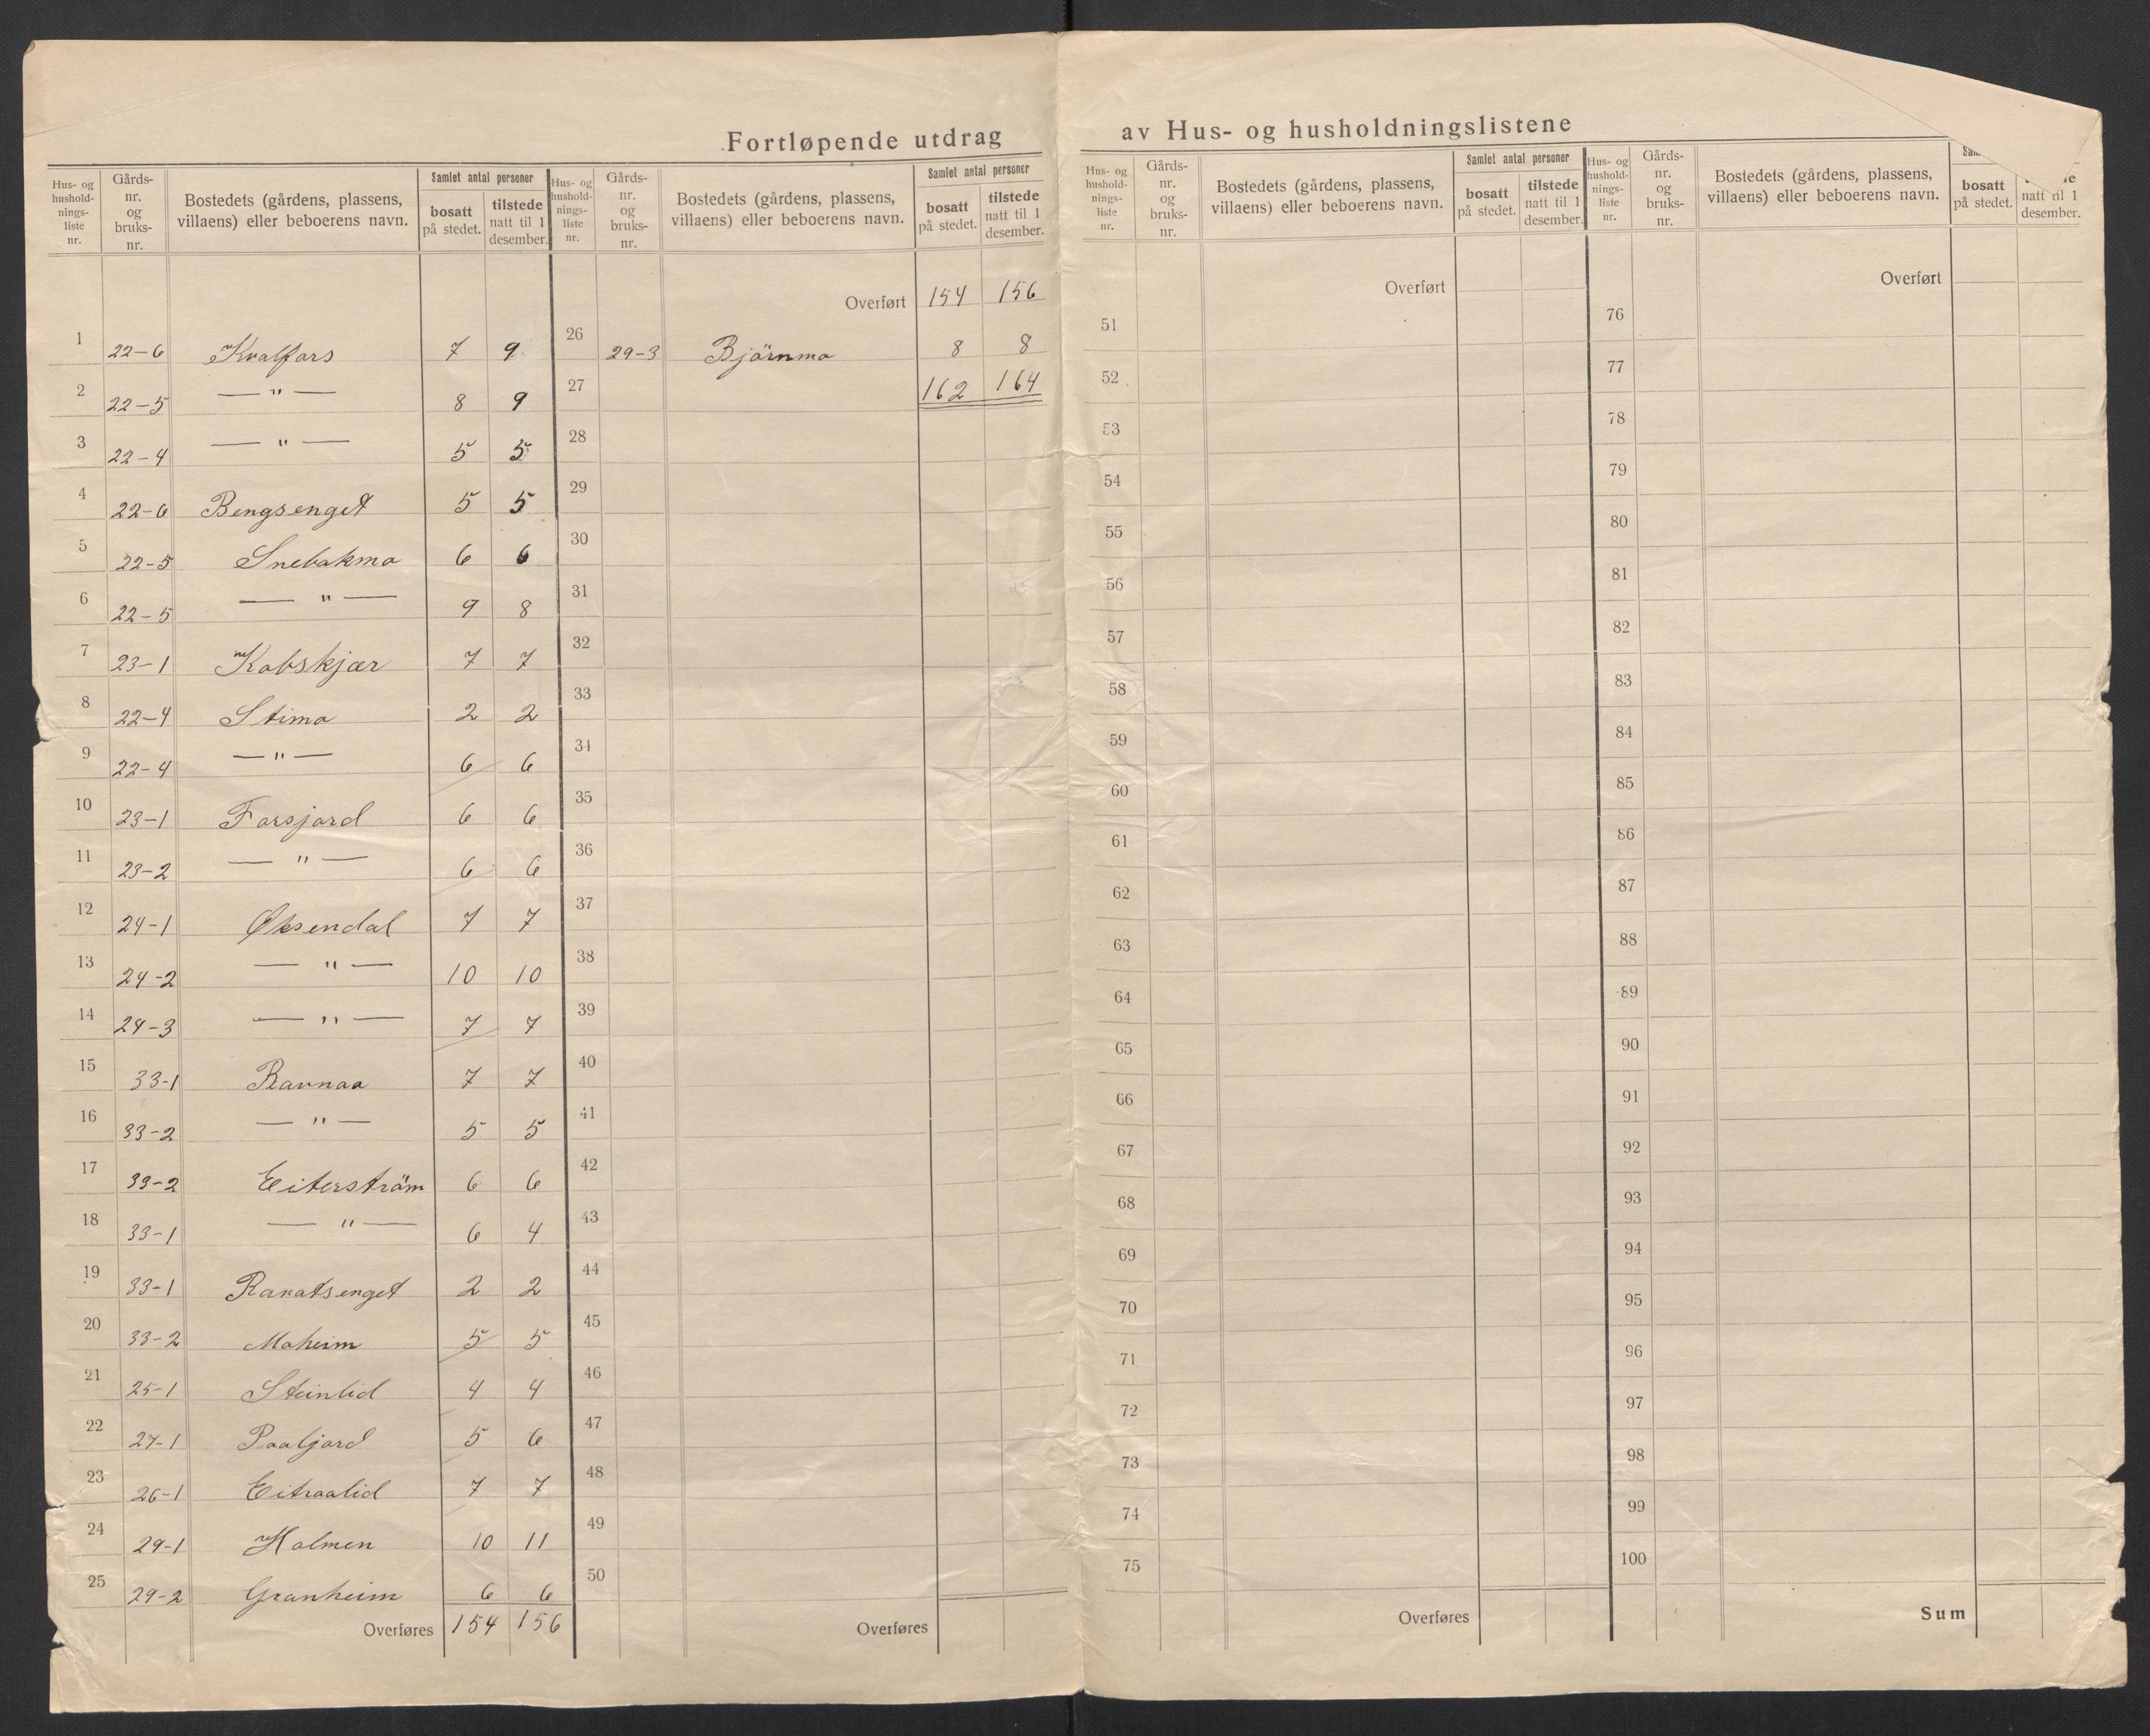 Fortløpende utdrag av Hus- og husholdningslistene
Hus- og hushold- nings- liste nr. Gårds- nr. og bruks- nr. Bostedets (gårdens, plassens, villaens) eller beboerens navn. Samlet antal personer bosatt på stedet. tilstede natt til 1 desember.
1 22-6 Kvalfors 7 9
2 22-5 — " — 8 9
3 22-4 — " — 5 5
4 22-6 Bengsenget 5 5
5 22-5 Snebakmo 6 6
6 22-5 — " — 9 8
7 23-1 Kobskjær 7 7
8 22-4 Stimo 2 2
9 22-4 — " — 6 6
10 23-1 Forsjord 6 6
11 23-2 — " — 6 6
12 24-1 Øksendal 7 7
13 24-2 — " — 10 10
14 24-3 — " — 7 7
15 33-1 Ravnaa 7 7
16 33-2 — " — 5 5
17 33-2 Eiterström 6 6
18 33-1 — " — 6 4
19 33-1 Ranatsenget 2 2
20 33-2 Moheim 5 5
21 25-1 Steinlid 4 4
22 27-1 Paaljord 5 6
23 26-1 Eitraalid 7 7
24 29-1 Holmen 10 11
25 29-2 Granheim 6 6
Overføres 154 156
Hus- og hushold- nings- liste nr. Gårds- nr. og bruks- nr. Bostedets (gårdens, plassens, villaens) eller beboerens navn. Samlet antal personer bosatt på stedet. tilstede natt til 1 desember.
Overført 154 156
26 29-3 Bjørnmo 8 8
27 162 164
28
29
30
31
32
33
34
35
36
37
38
39
40
41
42
43
44
45
46
47
48
49
50
Overføres
Hus- og hushold- nings- liste nr. Gårds- nr. og bruks- nr. Bostedets (gårdens, plassens, villaens) eller beboerens navn. Samlet antal personer bosatt på stedet. tilstede natt til 1 desember.
Overført
51
52
53
54
55
56
57
58
59
60
61
62
63
64
65
66
67
68
69
70
71
72
73
74
75
Overføres
Hus- og hushold- nings- liste nr. Gårds- nr. og bruks- nr. Bostedets (gårdens, plassens, villaens) eller beboerens navn. bosatt på stedet. natt til 1 desember.
Overført
76
77
78
79
80
81
82
83
84
85
86
87
88
89
90
91
92
93
94
95
96
97
98
99
100
Sum